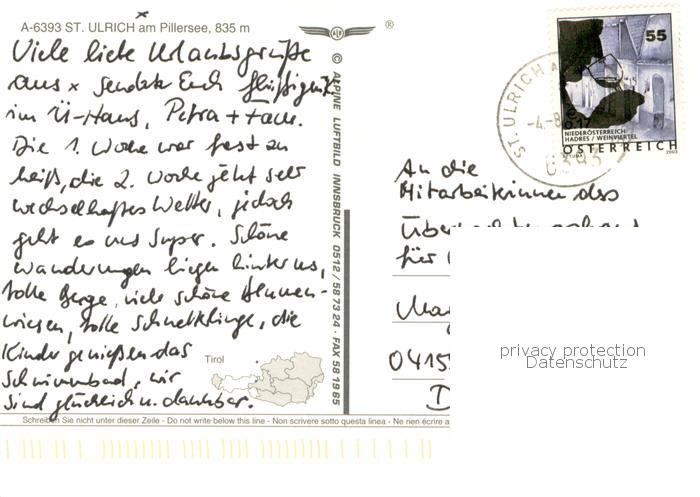 A-6393 ST. ULRICH am Pillersee, 835 m
Viele liebe Urlaubsgrüße
aus x sendet Euch
im Ü-Haus, Petra + Fam.
Die 1. Woche war fast zu
heiß, die 2. Woche jetzt sehr
wechselhaftes Wetter, jedoch
geht es uns super. Schöne
Wanderungen liegen hinter uns,
tolle Berge, viele schöne Blumen-
wiesen, tolle Schmetterlinge, die
Kinder genießen das
Schwimmbad, wir
sind glücklich u. dankbar.
Tirol
Schreiben Sie nicht unter dieser Zeile - Do not write below this line - Non scrivere sotto questa linea - Ne rien écrire a
© ALPINE LUFTBILD INNSBRUCK 0512 / 58 73 24 · FAX 58 19 85
®
ST. ULRICH
-4.-8.
6393
55
NIEDERÖSTERREICH
HADRES / WEINVIERTEL
ÖSTERREICH
2003
An die
Mitarbeiterinnen des
für
0415
D
privacy protection
Datenschutz